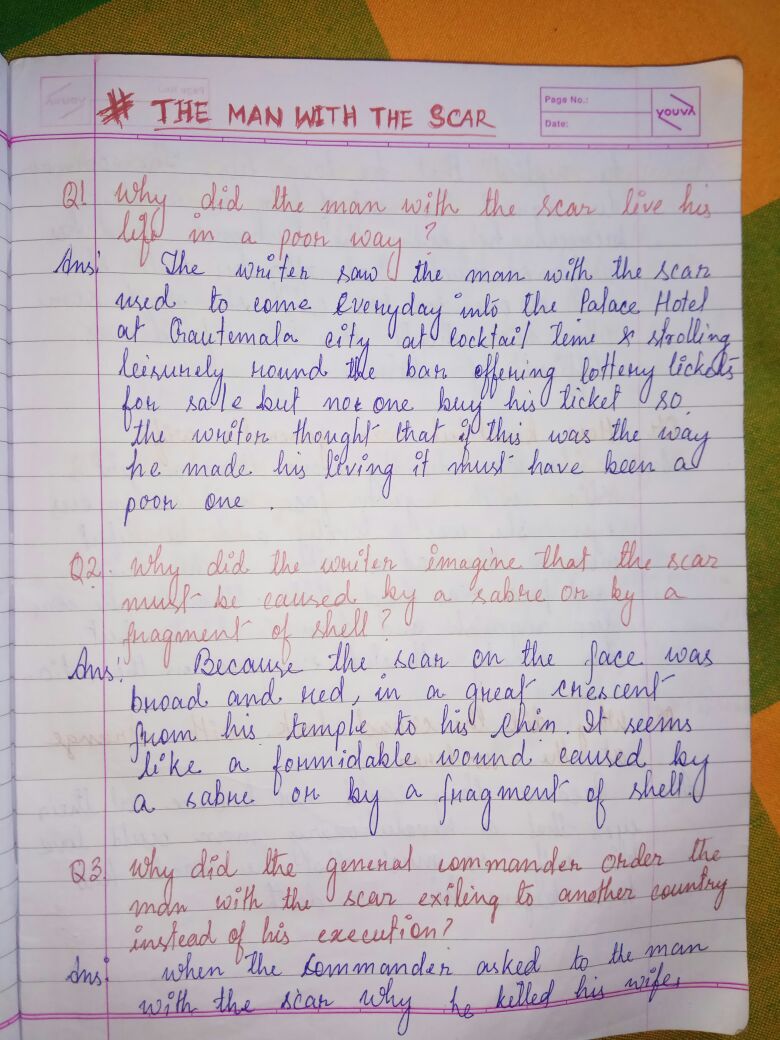 # THE MAN WITH THE SCAR
Page No.:
Date:
YOUVA
Q1 Why did the man with the scar live his
life in a poor way?
Ans: The writer saw the man with the scar
used to come everyday into the Palace Hotel
at Gautemala city at cocktail time & strolling
leisurely round the bar offering lottery tickets
for sale but not one buy his ticket so
the writer thought that if this was the way
he made his living it must have been a
poor one.
Q2. Why did the writer imagine that the scar
must be caused by a sabre or by a
fragment of shell?
Ans: Because the scar on the face was
broad and red, in a great crescent
from his temple to his chin. It seems
like a formidable wound caused by
a sabre or by a fragment of shell.
Q3. Why did the general commander order the
man with the scar exiling to another country
instead of his execution?
Ans: when the commander asked to the man
with the scar why he killed his wife,